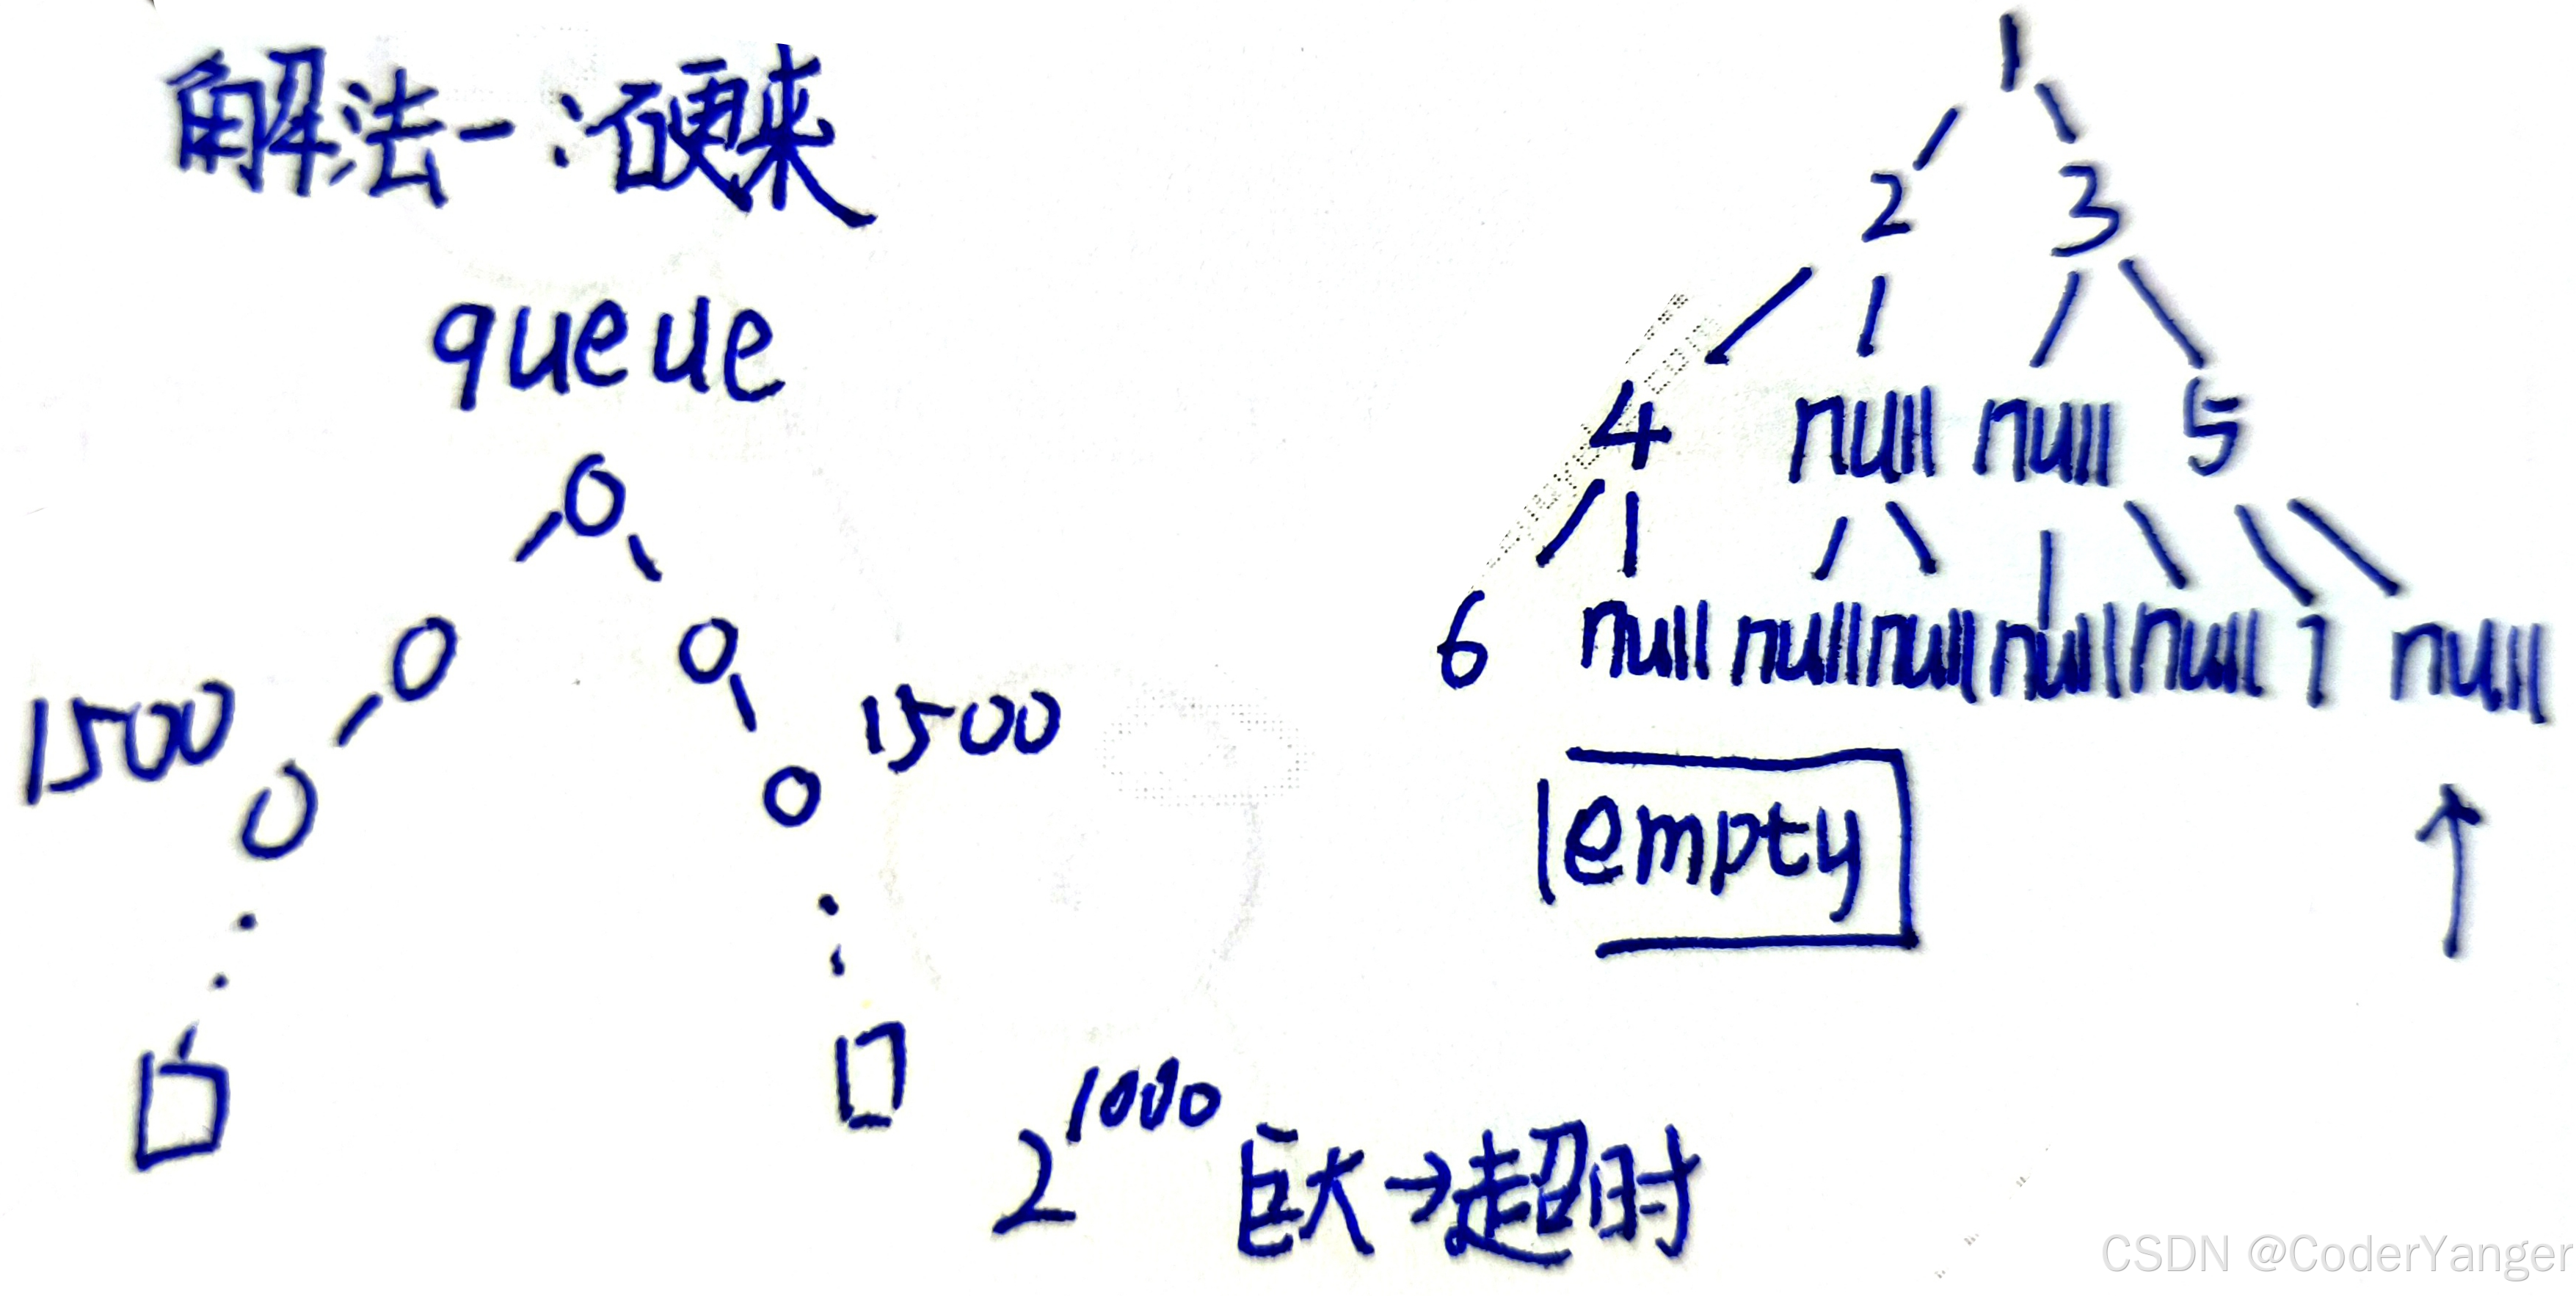 解法一:硬来
queue
1500
1500
2^1000 巨大→超时
1
2 3
4 null null 5
6 null null null null null 7 null
empty
CSDN @CoderYanger